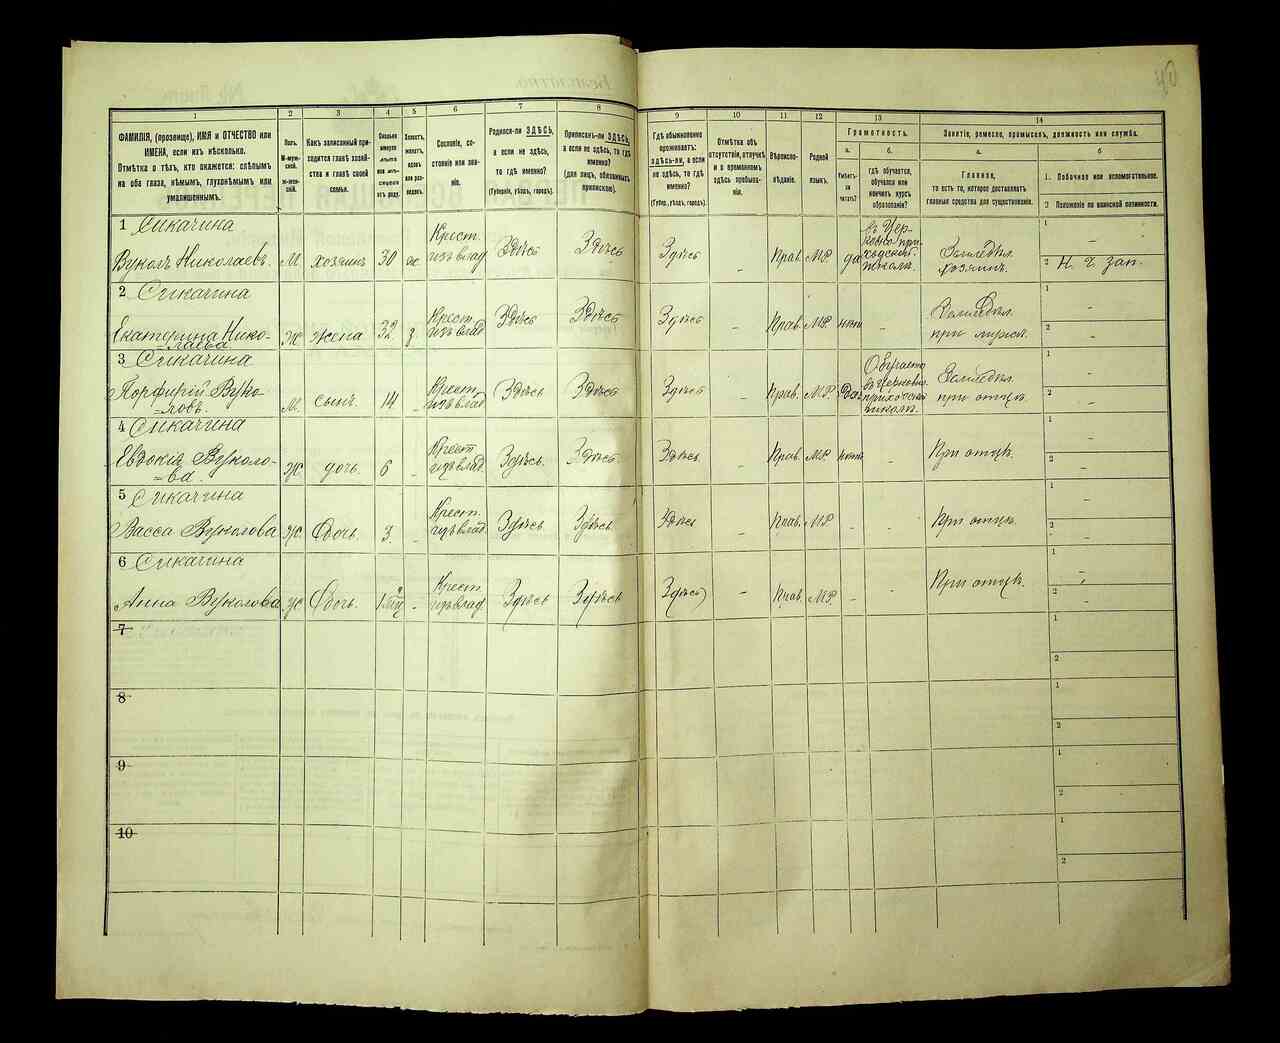 40
1
2
3
4
5
6
7
8
9
10
11
12
13
14
ФАМИЛІЯ, (прозвище), ИМЯ и ОТЧЕСТВО или
ИМЕНА, если ихъ нѣсколько.
Отмѣтка о тѣхъ, кто окажется: слѣпымъ
на оба глаза, нѣмымъ, глухонѣмымъ или
умалишеннымъ.
Полъ.
М-муж-
ской.
Ж-жен-
скій.
Какъ записанный при-
ходится главѣ хозяй-
ства и главѣ своей
семьи.
Сколько
минуло
лѣтъ
или мѣ-
сяцевъ
отъ роду.
Холостъ,
женатъ,
вдовъ
или раз-
веденъ.
Сословіе, со-
стояніе или зва-
ніе.
Родился-ли ЗДѢСЬ,
а если не здѣсь,
то гдѣ именно?
(Губернія, уѣздъ, городъ).
Приписанъ-ли ЗДѢСЬ,
а если не здѣсь, то гдѣ
именно?
(для лицъ, обязанныхъ
припискою).
Гдѣ обыкновенно
проживаетъ:
здѣсь-ли, а если
не здѣсь, то гдѣ
именно?
(Губер., уѣздъ, городъ).
Отмѣтка объ
отсутствіи, отлучкѣ
и о временномъ
здѣсь пребыва-
ніи.
Вѣроиспо-
вѣданіе.
Родной
языкъ.
Грамотность.
а.
Умѣетъ-
ли
читать?
б.
гдѣ обучается,
обучался или
кончилъ курсъ
образованія?
Занятіе, ремесло, промыселъ, должность или служба.
а.
Главное,
то есть то, которое доставляетъ
главныя средства для существованія.
б
1. Побочное или вспомогательное.
2 Положеніе по воинской повинности.
1 Сикачина
Вуколъ Николаевъ. М хозяинъ 30 ж Крест. изъ влад Здѣсь Здѣсь Здѣсь - Прав. МР. да въ Цер-
ковно при-
ходской
школѣ Земледѣл.
хозяинъ. 1 - 2 Н. Ч. Зап.
2 Сикачина
Екатерина Нико-
=лаева Ж жена 32 з Крест. изъ влад Здѣсь Здѣсь Здѣсь - Прав. МР. нѣтъ - Земледѣл.
при мужѣ. 1 - 2 -
3 Сикачина
Порфирій Вуко-
=ловъ. М. сынъ. 14 - Крест. изъ влад Здѣсь Здѣсь Здѣсь - Прав. МР. Да Обучается
въ Церковно
приходской
школѣ. Земледѣл.
при отцѣ. 1 - 2 -
4 Сикачина
Евдокія Вуколо-
=ва. Ж дочь. 6 - Крест. изъ влад. Здѣсь. Здѣсь. Здѣсь - Прав. МР. нѣтъ - При отцѣ. 1 - 2 -
5 Сикачина
Васса Вуколова Ж. Дочь. 3. - Крест. изъ влад. Здѣсь Здѣсь. Здѣсь - Прав. МР - - При отцѣ. 1 - 2 -
6 Сикачина
Анна Вуколова Ж Дочь. - Крест. изъ влад Здѣсь Здѣсь Здѣсь - Прав. МР. - - При отцѣ. 1 - 2 -
7 1
2
8 1
2
9 1
2
10 1
2